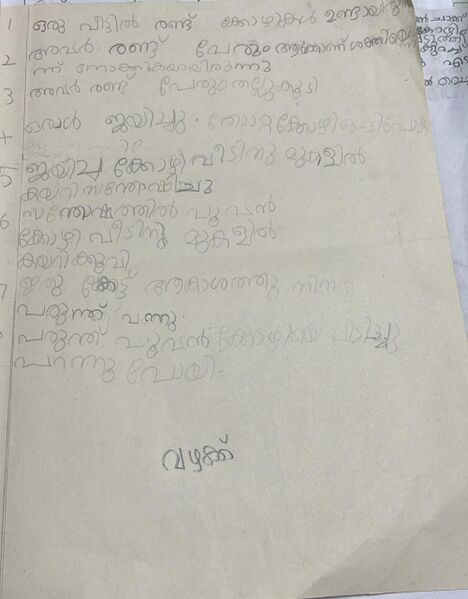 1 ഒരു വീട്ടിൽ രണ്ട് കോഴികൾ ഉണ്ടായിരുന്നു
2 അവർ രണ്ട് പേരും ആരാണ് ശക്തിയെ
ന്ന് നോക്കുകയായിരുന്നു.
3 അവർ രണ്ട് പേരും തല്ലുകൂടി
4 ഒരാൾ ജയിച്ചു. തോറ്റ കോഴി ഓടിപോയി
5 ജയിച്ച കോഴി വീടിനു മുകളിൽ
കയറി സന്തോഷിച്ചു
6 സന്തോഷത്തിൽ പൂവൻ
കോഴി വീടിനു മുകളിൽ
കയറിക്കൂവി
7 ഇതു കേട്ട് ആകാശത്തു നിന്നു
പരുന്ത് വന്നു.
പരുന്ത് പൂവൻ കോഴിയെ പിടിച്ചു
പറന്നു പോയി.
വഴക്ക്